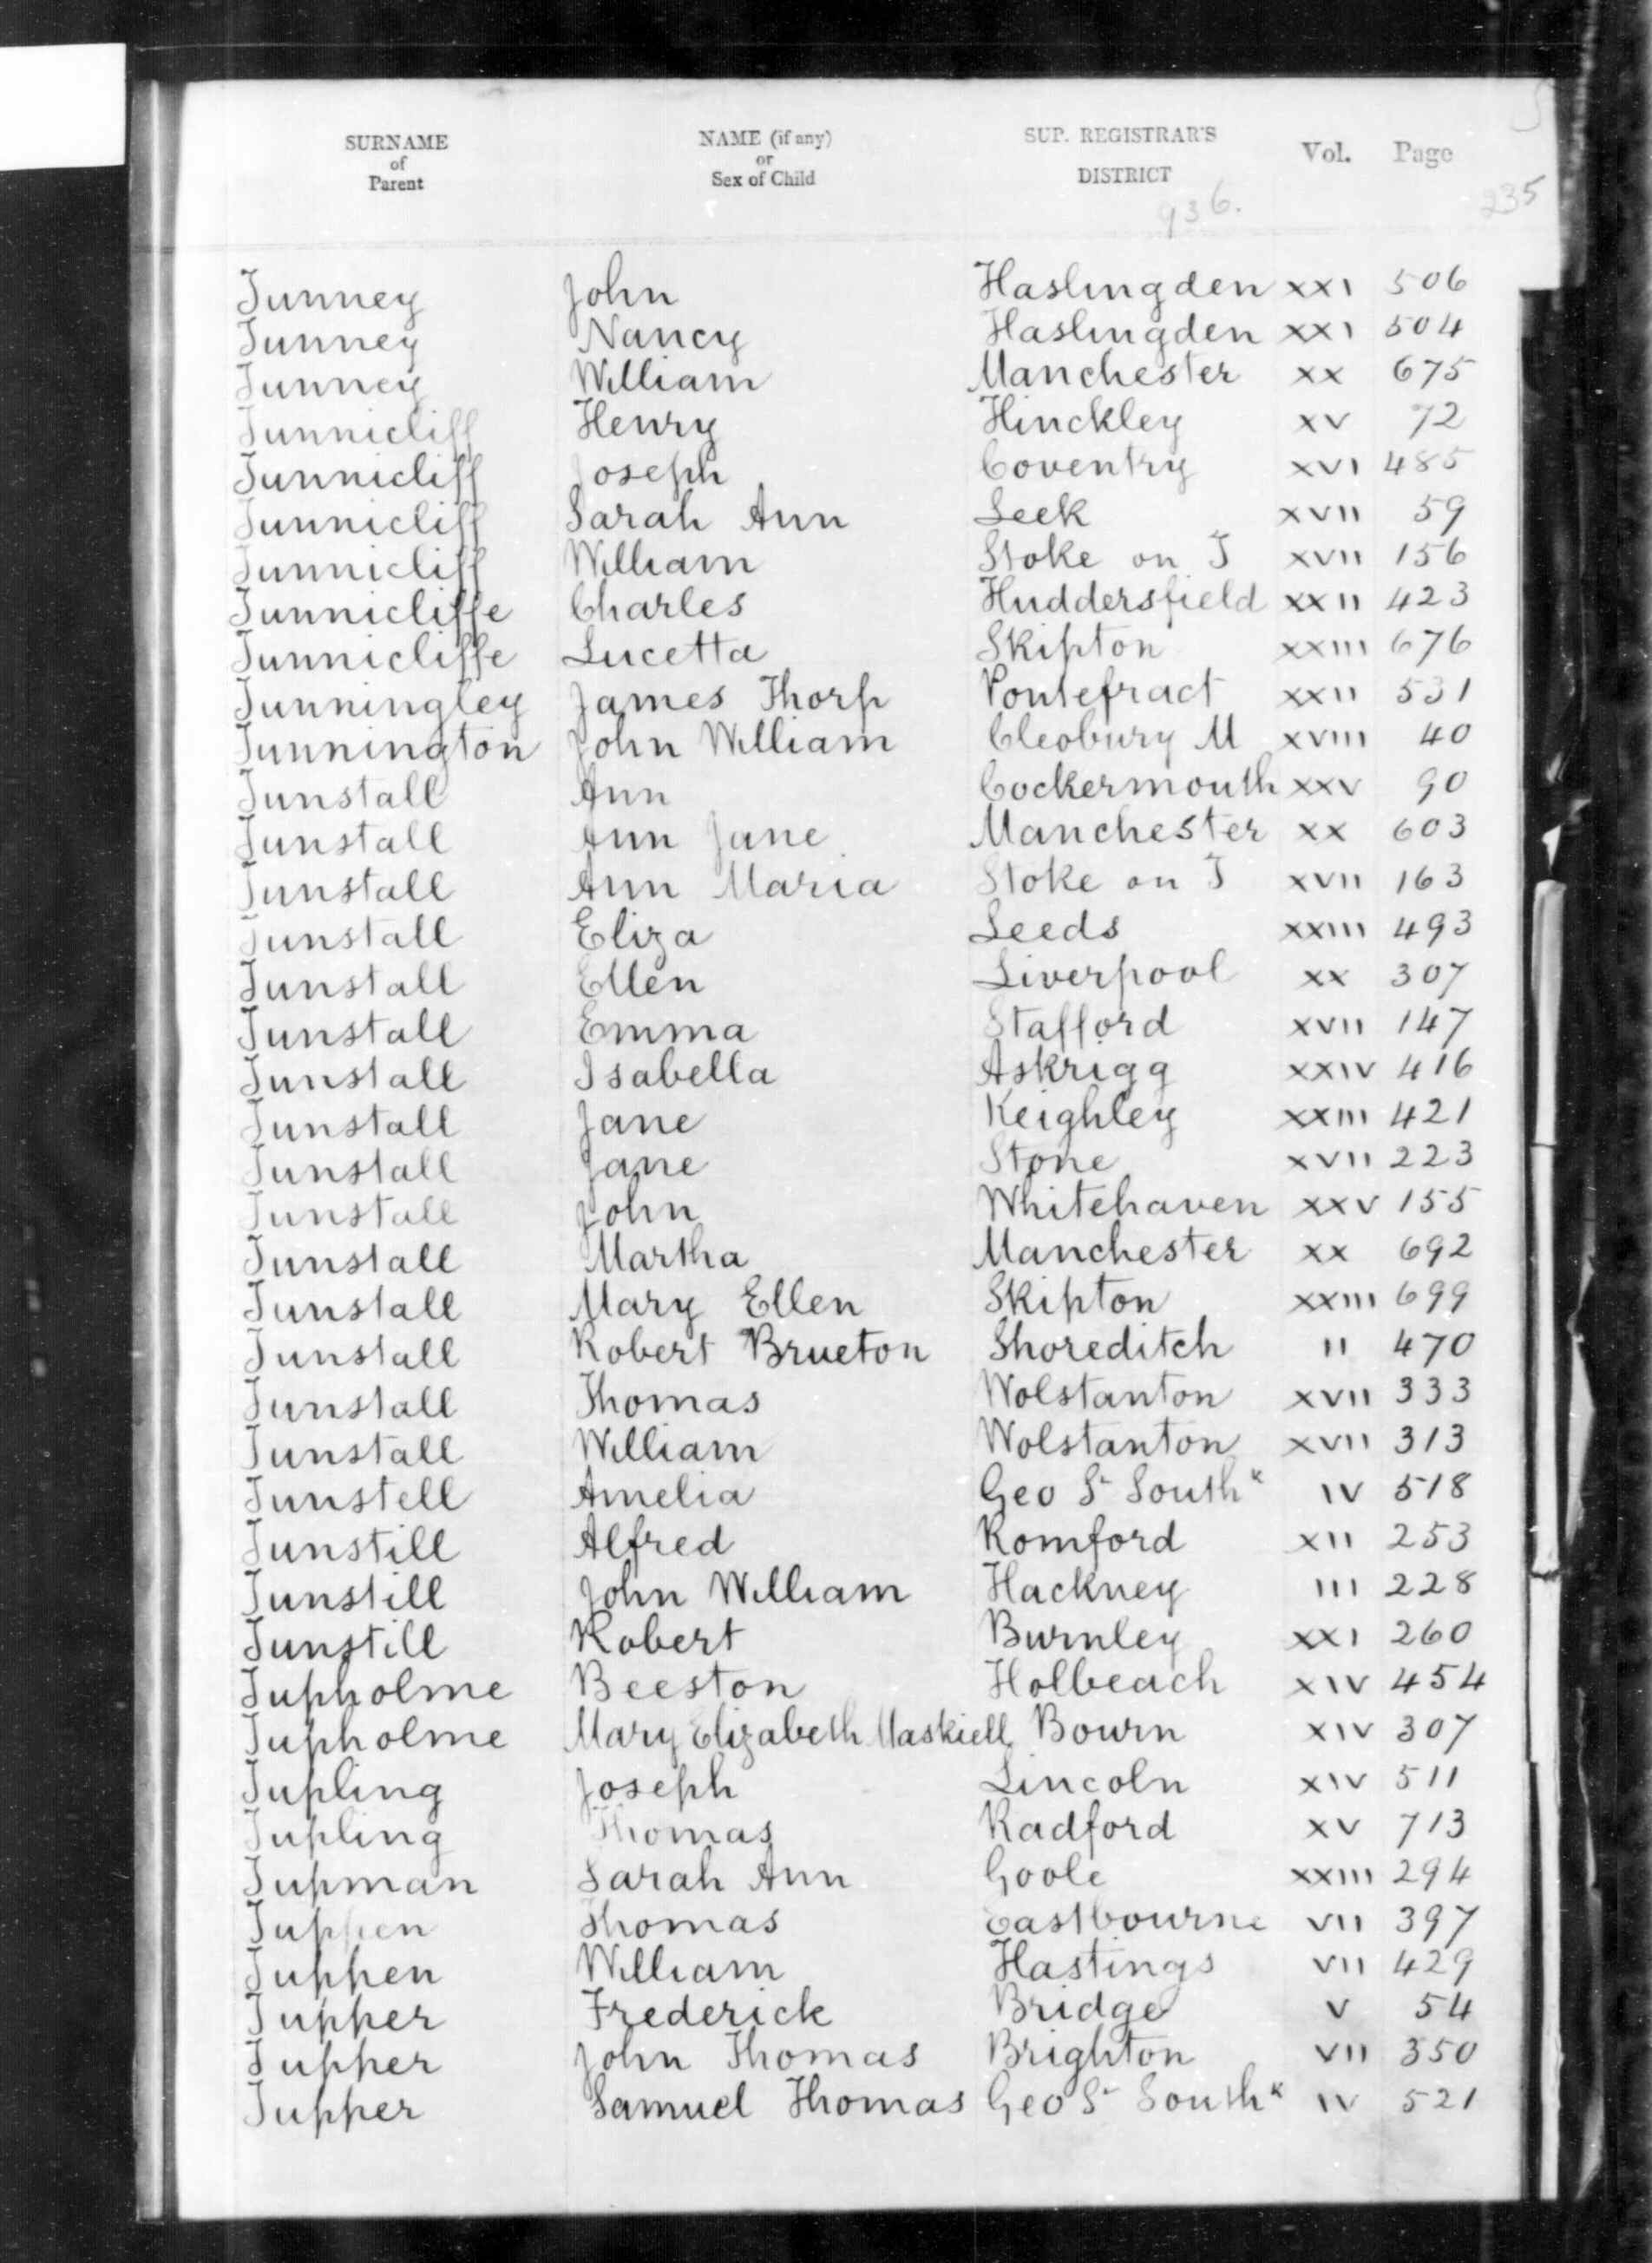 SURNAME of Parent NAME (if any) or Sex of Child SUP. REGISTRAR'S DISTRICT Vol. Page
936. 235
Tunney John Haslingden XXI 506
Tunney Nancy Haslingden XXI 504
Tunney William Manchester XX 675
Tunnicliff Henry Hinckley XV 72
Tunnicliff Joseph Coventry XVI 485
Tunnicliff Sarah Ann Leek XVII 59
Tunnicliff William Stoke on T XVII 156
Tunnicliffe Charles Huddersfield XXII 423
Tunnicliffe Lucetta Skipton XXIII 676
Tunningley James Thorp Pontefract XXII 531
Tunnington John William Cleobury M XVIII 40
Tunstall Ann Cockermouth XXV 90
Tunstall Ann Jane Manchester XX 603
Tunstall Ann Maria Stoke on T XVII 163
Tunstall Eliza Leeds XXIII 493
Tunstall Ellen Liverpool XX 307
Tunstall Emma Stafford XVII 147
Tunstall Isabella Askrigg XXIV 416
Tunstall Jane Keighley XXIII 421
Tunstall Jane Stone XVII 223
Tunstall John Whitehaven XXV 155
Tunstall Martha Manchester XX 692
Tunstall Mary Ellen Skipton XXIII 699
Tunstall Robert Brueton Shoreditch II 470
Tunstall Thomas Wolstanton XVII 333
Tunstall William Wolstanton XVII 313
Tunstell Amelia Geo St Southk IV 518
Tunstill Alfred Romford XII 253
Tunstill John William Hackney III 228
Tunstill Robert Burnley XXI 260
Tupholme Beeston Holbeach XIV 454
Tupholme Mary Elizabeth Maskiell Bourn XIV 307
Tupling Joseph Lincoln XIV 511
Tupling Thomas Radford XV 713
Tupman Sarah Ann Goole XXIII 294
Tuppen Thomas Eastbourne VII 397
Tuppen William Hastings VII 429
Tupper Frederick Bridge V 54
Tupper John Thomas Brighton VII 350
Tupper Samuel Thomas Geo St Southk IV 521